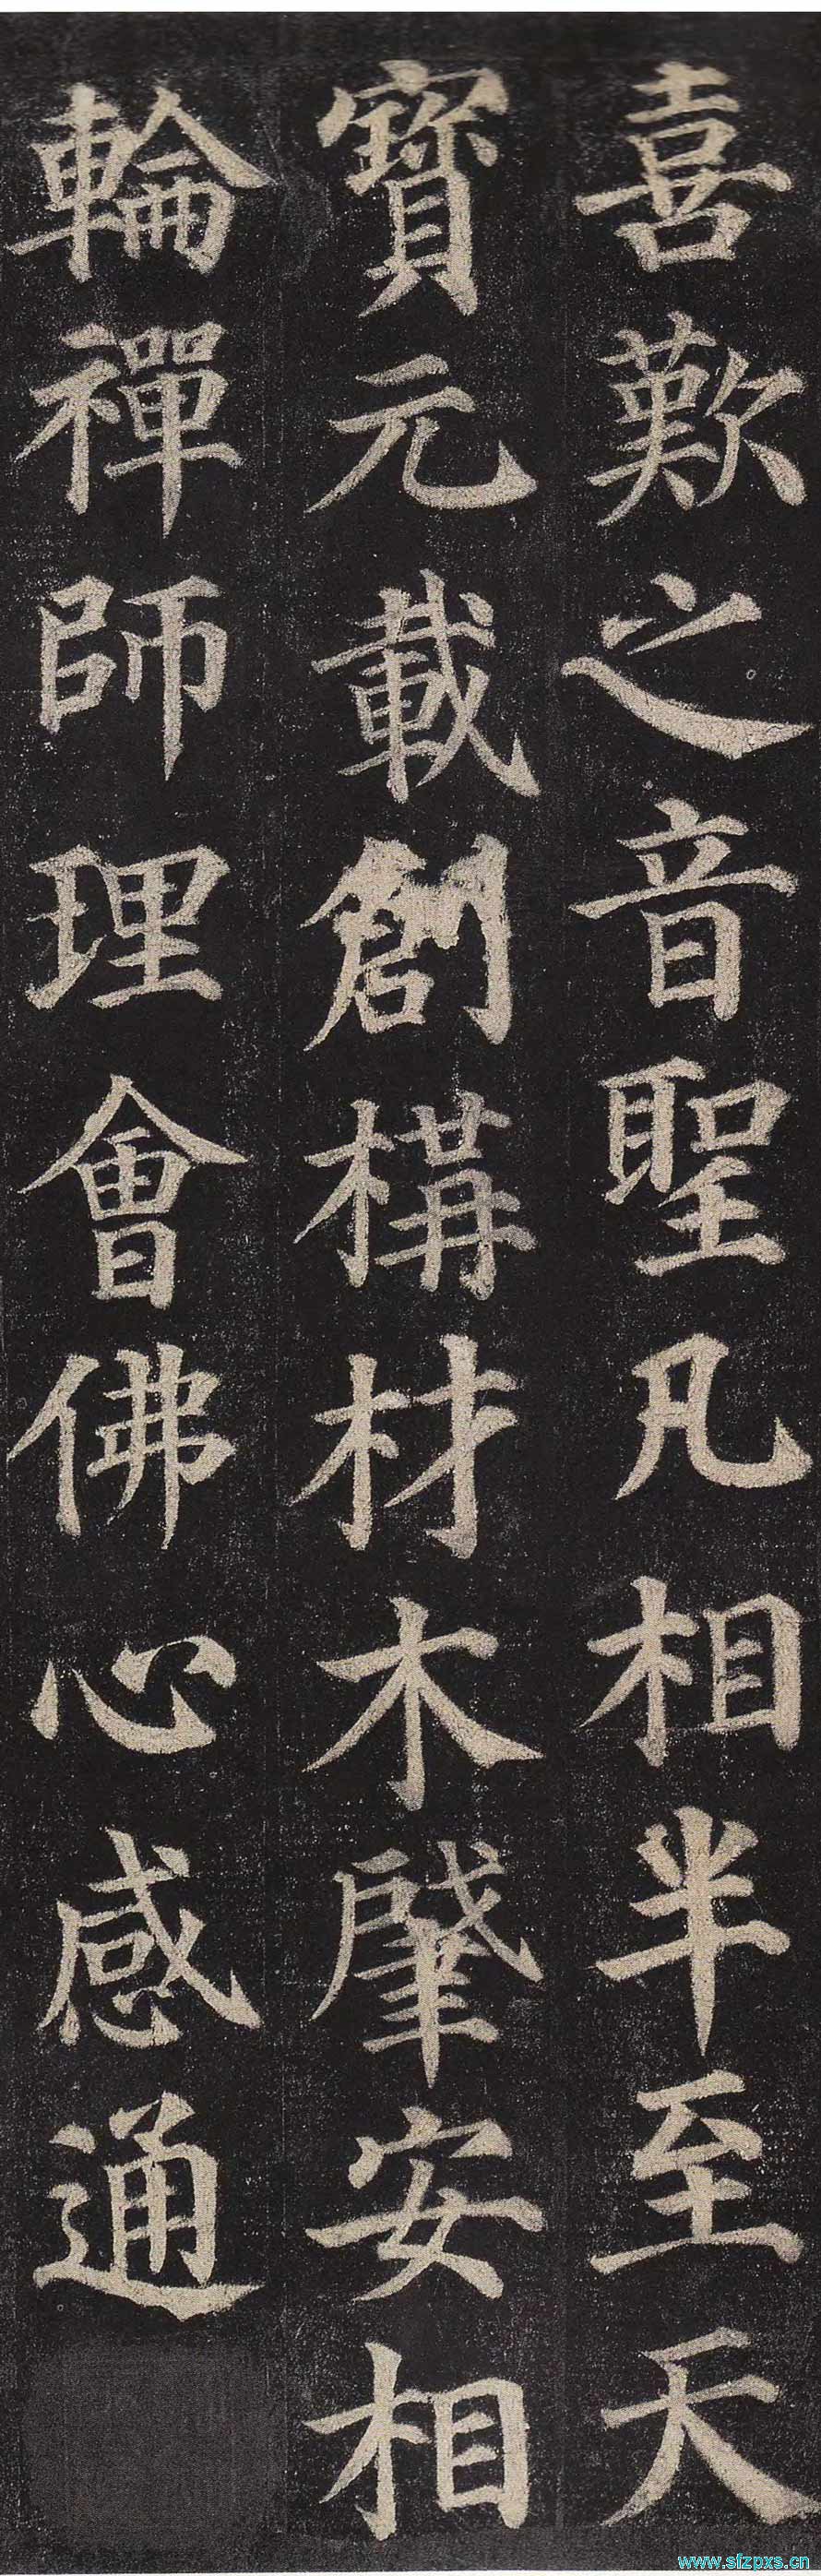 喜歎之音聖凡相半至天
寶元載創構材木肇安相
輪禪師理會佛心感通
www.sfzpxs.cn